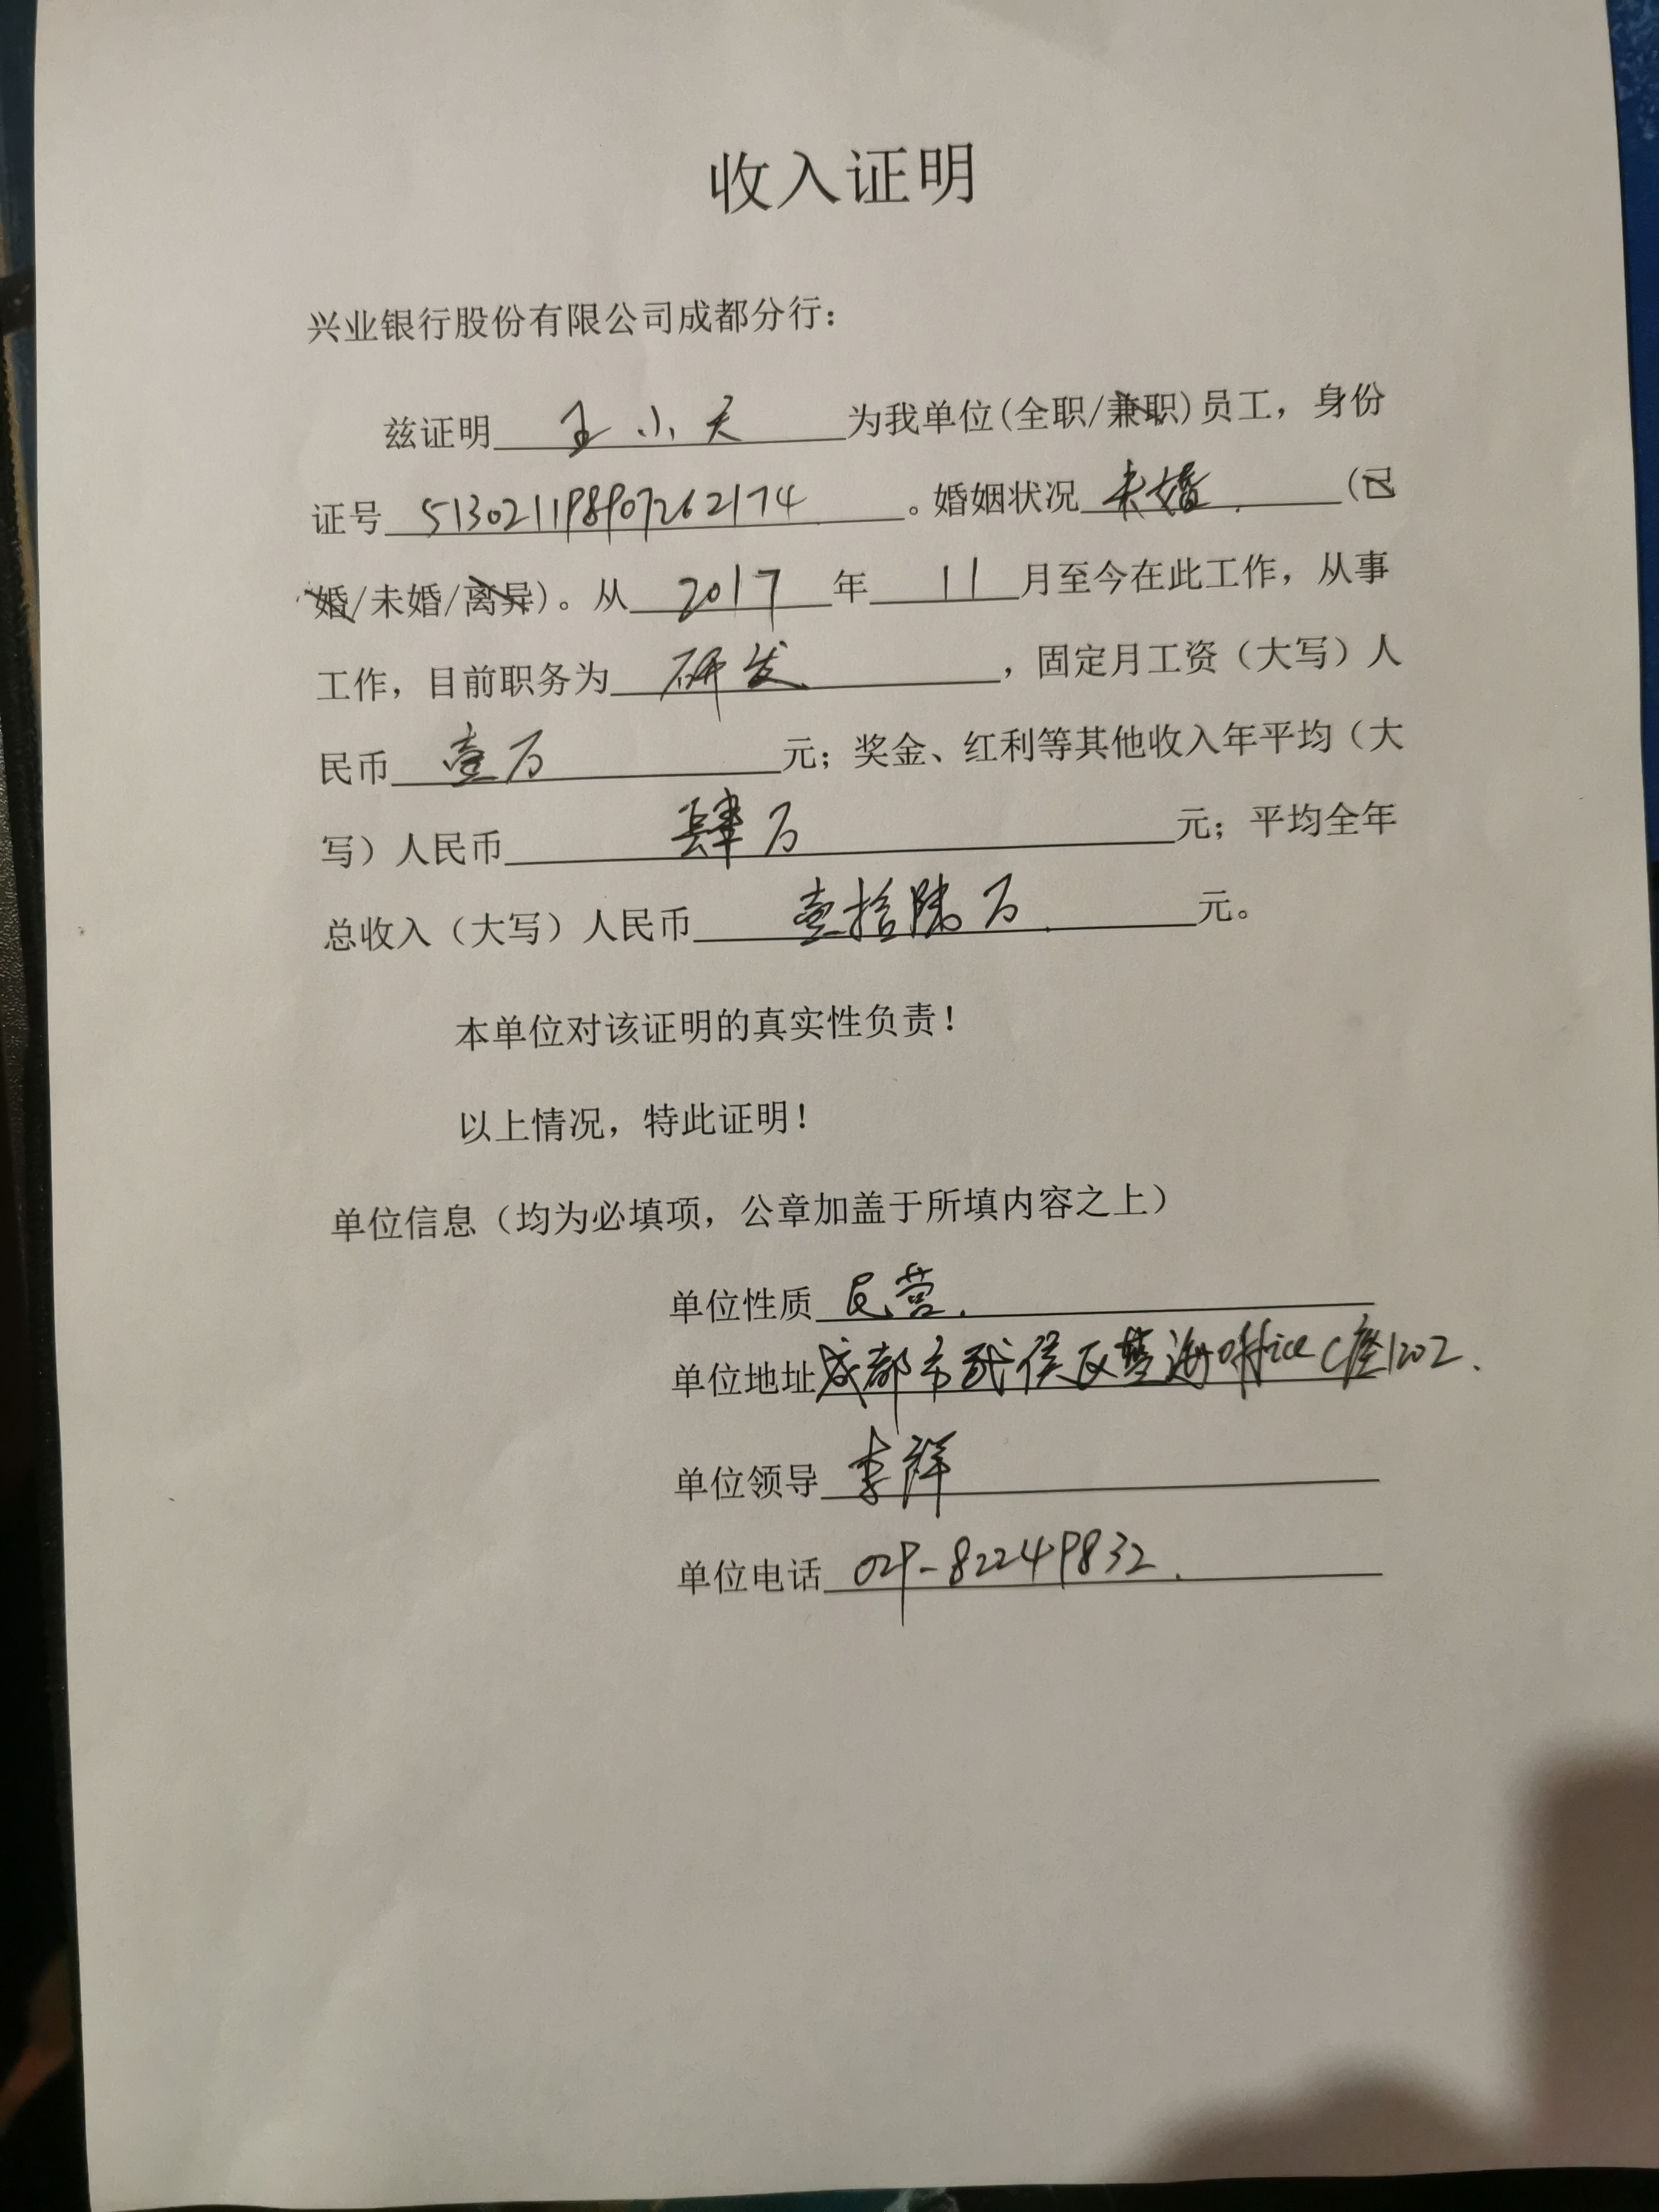 收入证明
兴业银行股份有限公司成都分行：
兹证明 王小天 为我单位(全职/兼职)员工，身份
证号 513021198907262174 。婚姻状况 未婚. (已
婚/未婚/离异)。从 2017 年 11 月至今在此工作，从事
工作，目前职务为 研发 ，固定月工资（大写）人
民币 壹万 元；奖金、红利等其他收入年平均（大
写）人民币 肆万 元；平均全年
总收入（大写）人民币 壹拾陆万. 元。
本单位对该证明的真实性负责！
以上情况，特此证明！
单位信息（均为必填项，公章加盖于所填内容之上）
单位性质 民营.
单位地址 成都市武侯区蓝海office C座1202.
单位领导 李祥
单位电话 029-82249832.